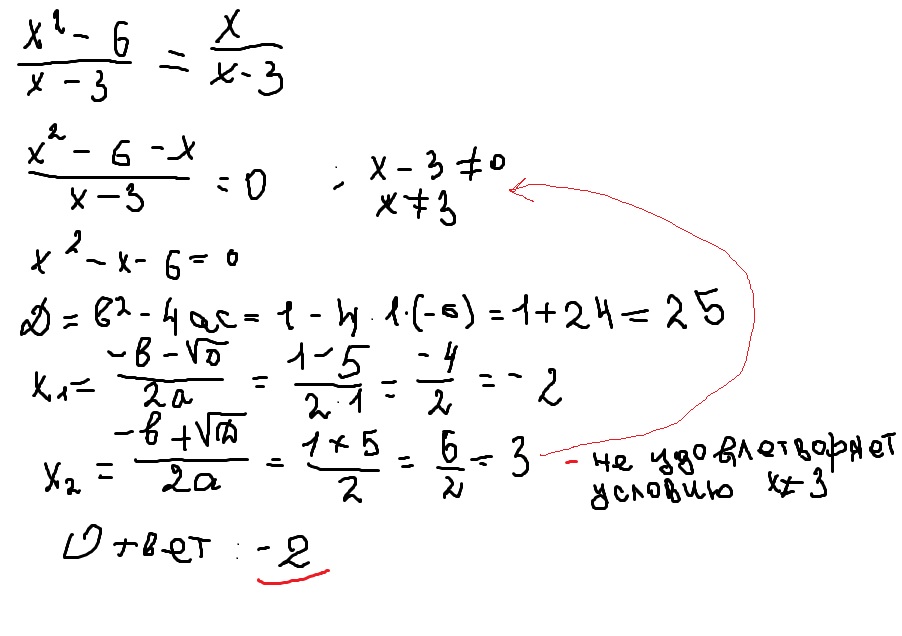 (x² - 6)/(x - 3) = x/(x - 3)
(x² - 6 - x)/(x - 3) = 0 , x - 3 ≠ 0
x ≠ 3
x² - x - 6 = 0
D = b² - 4ac = 1 - 4 · 1 · (-6) = 1 + 24 = 25
x₁ = (-b - √D)/(2a) = (1 - 5)/(2 · 1) = -4/2 = -2
x₂ = (-b + √D)/(2a) = (1 + 5)/2 = 6/2 = 3 - не удовлетворяет
условию x ≠ 3
Ответ : -2